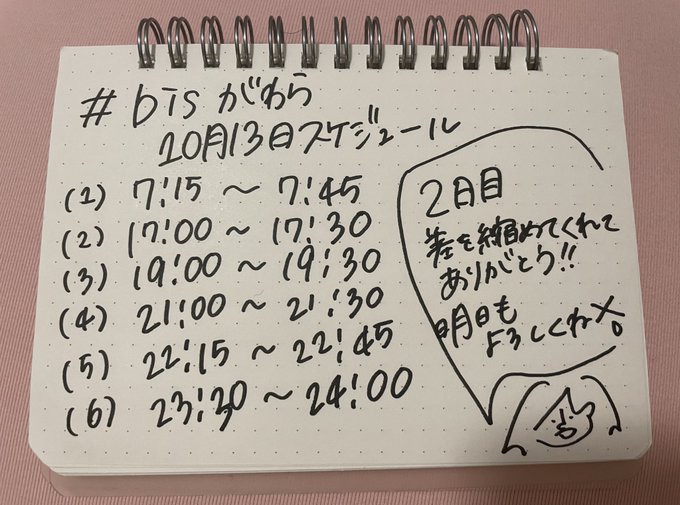 # bis がわら
10月13日スケジュール
(1) 7:15 〜 7:45
(2) 17:00 〜 17:30
(3) 19:00 〜 19:30
(4) 21:00 〜 21:30
(5) 22:15 〜 22:45
(6) 23:30 〜 24:00
2日目
差を縮めてくれて
ありがとう!!
明日も
よろしくね